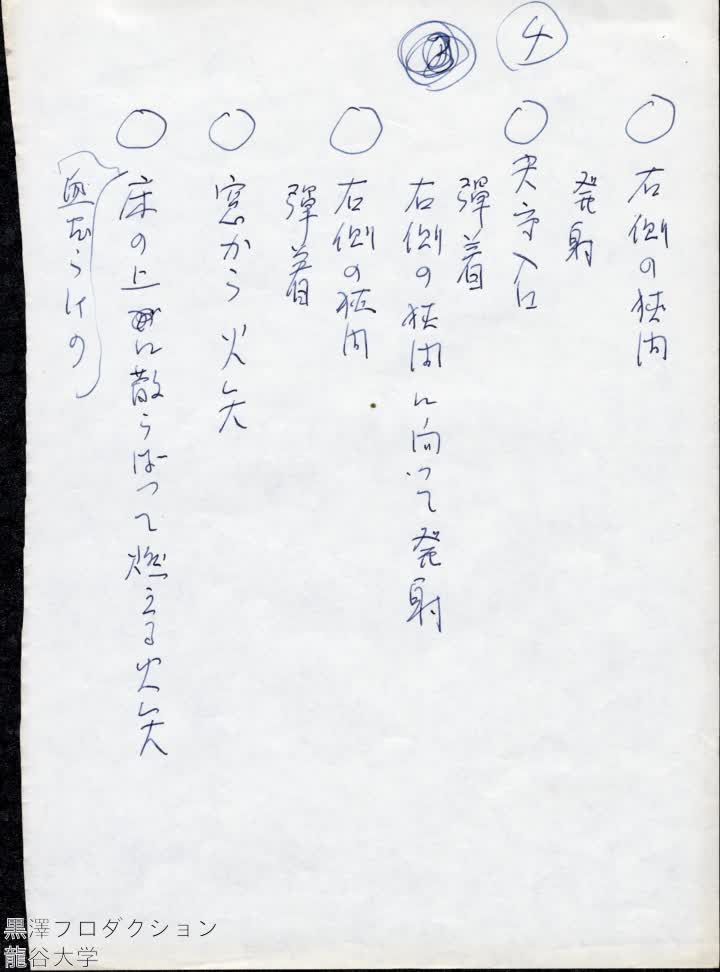 ④
○ 右側の狭間
発射
○ 天守入口
弾着
右側の狭間に向って発射
○ 右側の狭間
弾着
○ 窓から火矢
○ 床の上に散らばって燃える火矢
血だらけの
黒澤プロダクション
龍谷大学